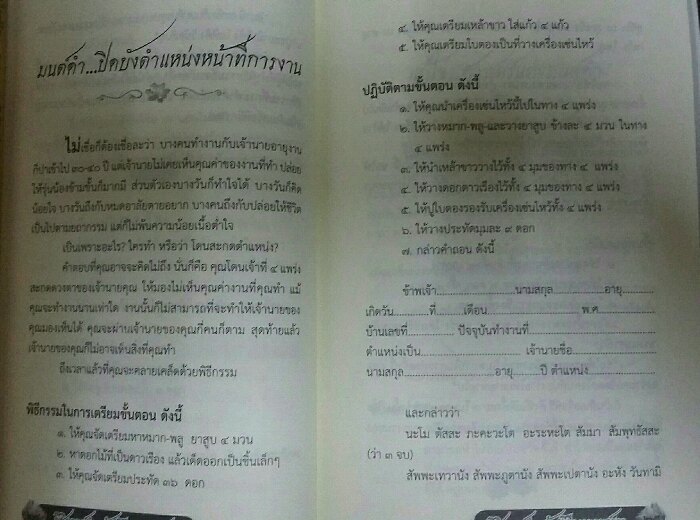 มนต์ดำ...ปิดบังตำแหน่งหน้าที่การงาน
ไม่เชื่อก็ต้องเชื่อละว่า บางคนทำงานกับเจ้านายอายุงาน
ก็ปาเข้าไป ๓๐-๔๐ ปี แต่เจ้านายไม่เคยเห็นคุณค่าของงานที่ทำ ปล่อย
ให้รุ่นน้องข้ามขั้นก็มากมี ส่วนตัวเองบางวันก็ทำใจได้ บางวันก็คิด
น้อยใจ บางวันถึงกับหมดอาลัยตายอยาก บางคนถึงกับปล่อยให้ชีวิต
เป็นไปตามยถากรรม แต่ก็ไม่พ้นความน้อยเนื้อต่ำใจ
เป็นเพราะอะไร? ใครทำ หรือว่า โดนสะกดตำแหน่ง?
คำตอบที่คุณอาจจะคิดไม่ถึง นั่นก็คือ คุณโดนเจ้าที่ ๔ แพร่ง
สะกดดวงตาของเจ้านายคุณ ให้มองไม่เห็นคุณค่างานที่คุณทำ แม้
คุณจะทำงานนานเท่าใด งานนั้นก็ไม่สามารถที่จะทำให้เจ้านายของ
คุณมองเห็นได้ คุณจะผ่านเจ้านายของคุณกี่คนก็ตาม สุดท้ายแล้ว
เจ้านายของคุณก็ไม่อาจเห็นสิ่งที่คุณทำ
ถึงเวลาแล้วที่คุณจะคลายเคล็ดด้วยพิธีกรรม
พิธีกรรมในการเตรียมขั้นตอน ดังนี้
๑. ให้คุณจัดเตรียมหาหมาก-พลู ยาสูบ ๔ มวน
๒. หาดอกไม้ที่เป็นดาวเรือง แล้วเด็ดออกเป็นชิ้นเล็กๆ
๓. ให้คุณจัดเตรียมประทัด ๓๖ ดอก
๔. ให้คุณเตรียมเหล้าขาว ใส่แก้ว ๔ แก้ว
๕. ให้คุณเตรียมใบตองเป็นที่วางเครื่องเซ่นไหว้
ปฏิบัติตามขั้นตอน ดังนี้
๑. ให้คุณนำเครื่องเซ่นไหว้นี้ไปในทาง ๔ แพร่ง
๒. ให้วางหมาก-พลู-และวางยาสูบ ข้างละ ๔ มวน ในทาง
๔ แพร่ง
๓. ให้นำเหล้าขาววางไว้ทั้ง ๔ มุมของทาง ๔ แพร่ง
๔. ให้วางดอกดาวเรืองไว้ทั้ง ๔ มุมของทาง ๔ แพร่ง
๕. ให้ปูใบตองรองรับเครื่องเซ่นไหว้ทั้ง ๔ แพร่ง
๖. ให้วางประทัดมุมละ ๙ ดอก
๗. กล่าวคำถอน ดังนี้
ข้าพเจ้า....................นามสกุล....................อายุ........
เกิดวัน............ที่.......เดือน........................พ.ศ...............
บ้านเลขที่.............. ปัจจุบันทำงานที่..............................
ตำแหน่งเป็น.................... เจ้านายชื่อ....................
นามสกุล..............................อายุ.......ปี ตำแหน่ง....................
และกล่าวว่า
นะโม ตัสสะ ภะคะวะโต อะระหะโต สัมมา สัมพุทธัสสะ
(ว่า ๓ จบ)
สัพพะเทวานัง สัพพะภูตานัง สัพพะเปตานัง อะหัง วันทามิ